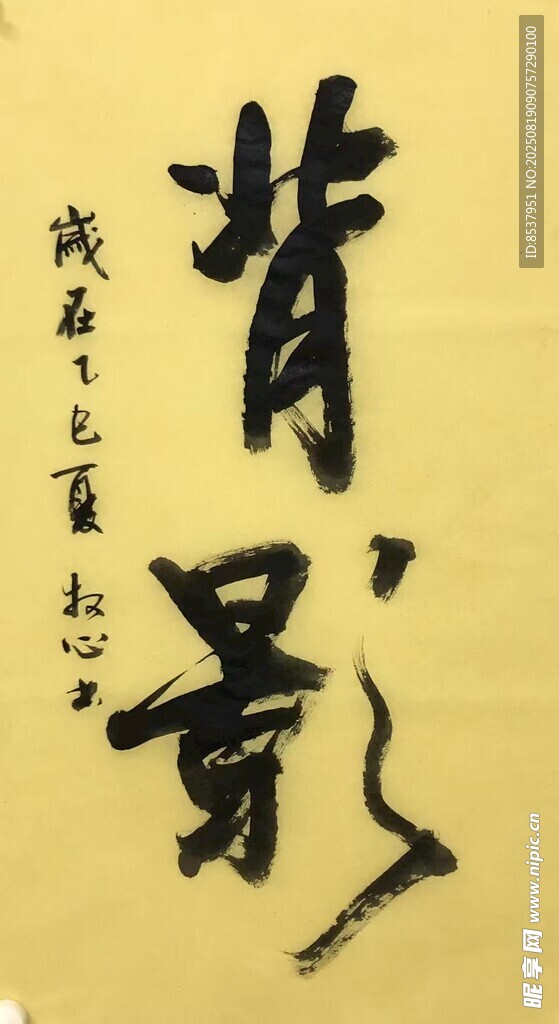 背影
歲在乙巳夏 牧心书
ID:8537951 NO:20250819090757290100
昵享网 www.nipic.cn